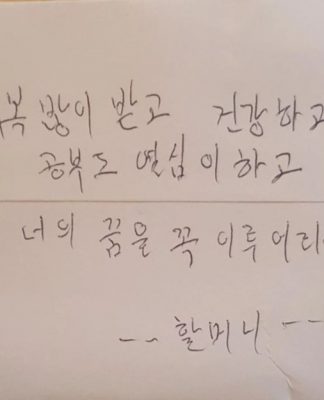 복 많이 받고 건강하고
공부도 열심이하고
너의 꿈을 꼭 이루어라
-- 할머니 --